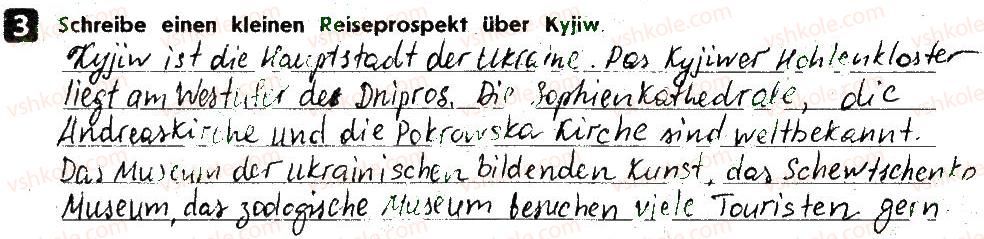 3 Schreibe einen kleinen Reiseprospekt über Kyjiw.
Kyjiw ist die Hauptstadt der Ukraine. Das Kyjiwer Hohlenkloster
liegt am Westufer des Dnipros. Die Sophienkathedrale, die
Andreaskirche und die Pokrowska Kirche sind weltbekannt.
Das Museum der ukrainischen bildenden Kunst, das Schewtschenko
Museum, das zoologische Museum besuchen viele Touristen gern